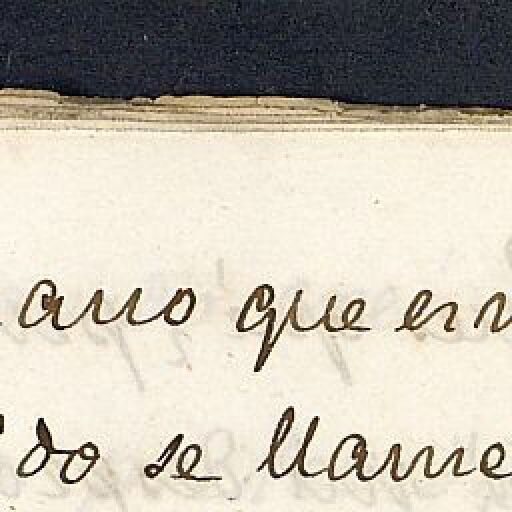 ano que en
do se llame